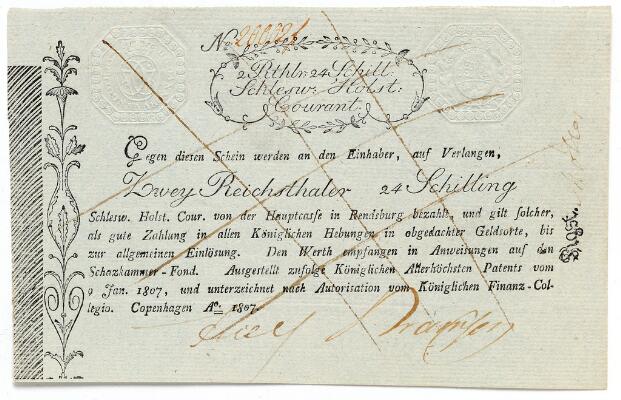 No
2 Rthlr: 24 Schill:
Schlesw: Holst:
Courant.
Gegen diesen Schein werden an den Einhaber, auf Verlangen,
Zwey Reichsthaler 24 Schilling
Schlesw. Holst. Cour. von der Hauptcasse in Rendsburg bezahlt, und gilt solcher,
als gute Zahlung in allen Königlichen Hebungen in obgedachter Geldsorte, bis
zur allgemeinen Einlösung. Den Werth empfangen in Anweisungen auf den
Schazkammer-Fond. Ausgestellt zufolge Königlichen Allerhöchsten Patents vom
9 Jan. 1807, und unterzeichnet nach Autorisation vom Königlichen Finanz-Col-
legio. Copenhagen Ao. 1807.